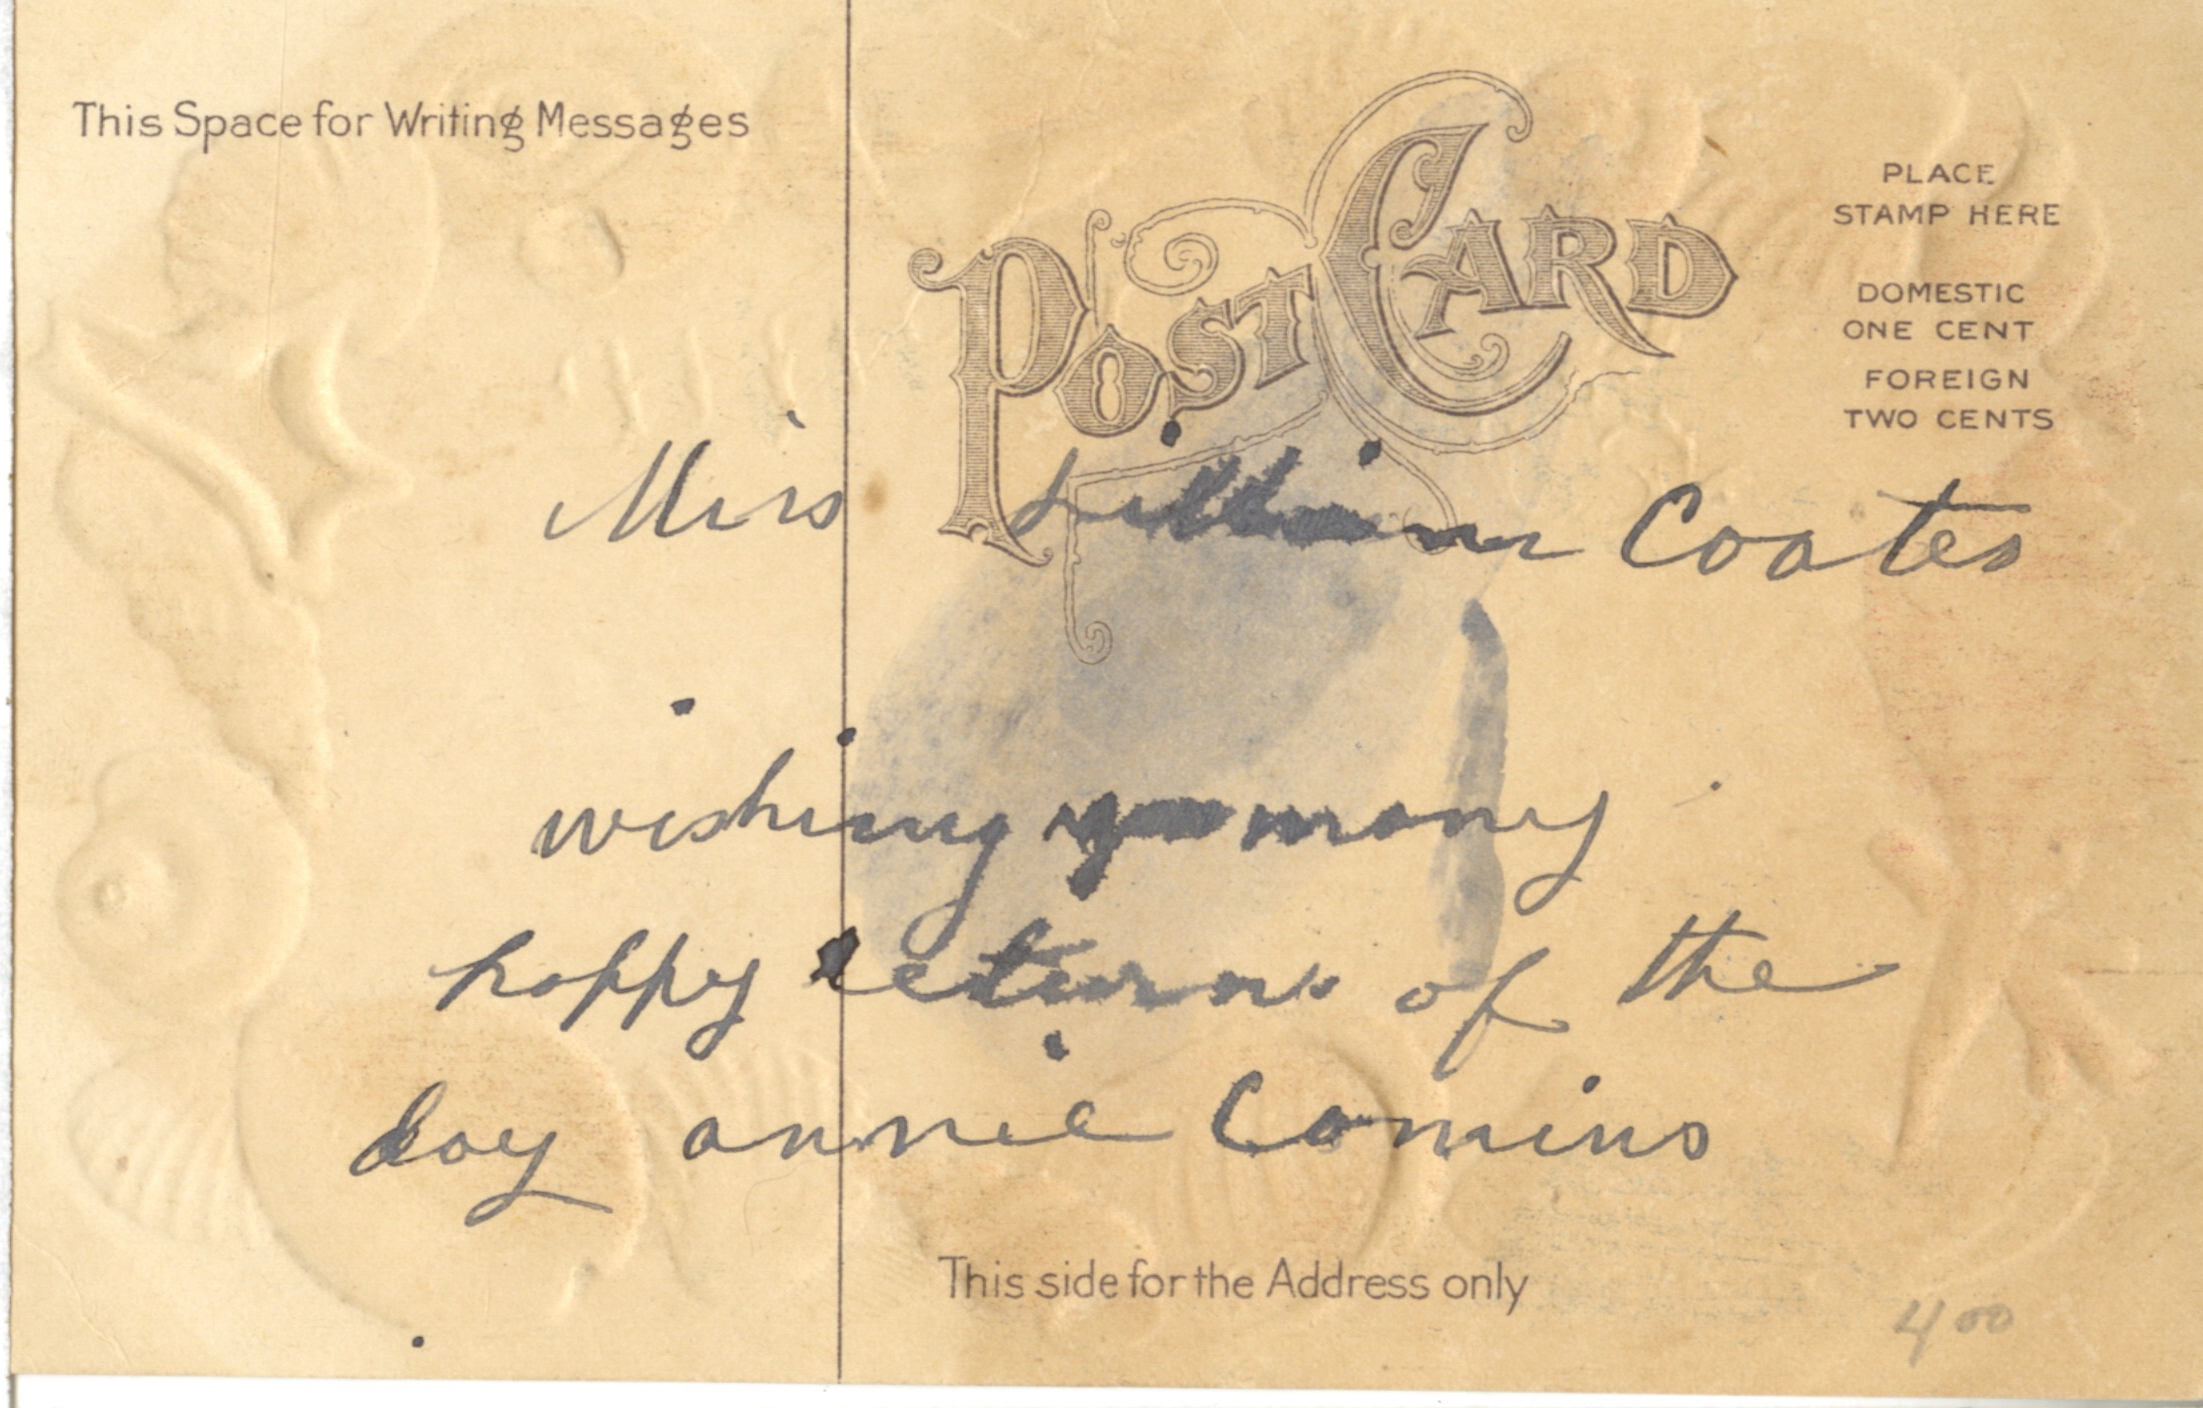 This Space for Writing Messages
POST CARD
PLACE
STAMP HERE
DOMESTIC
ONE CENT
FOREIGN
TWO CENTS
Miss Lillian Coates
wishing you many
happy returns of the
day annie Comins
This side for the Address only
4 00